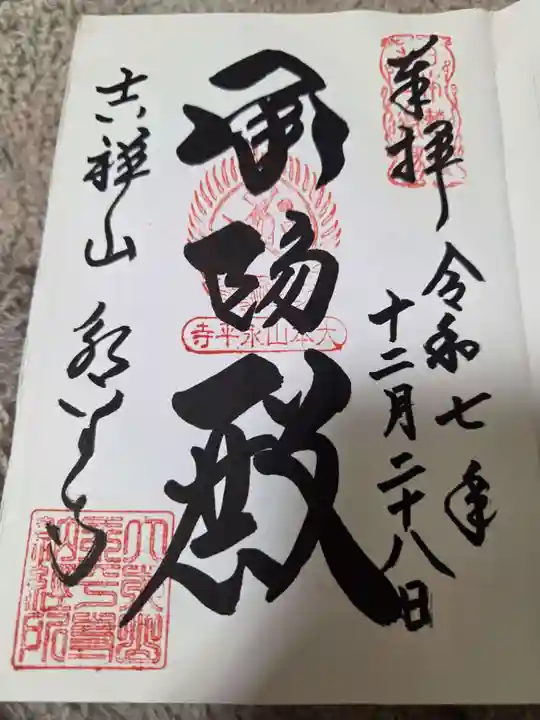 奉拝
令和七年
十二月二十八日
承陽殿
大本山永平寺
吉祥山 永平寺